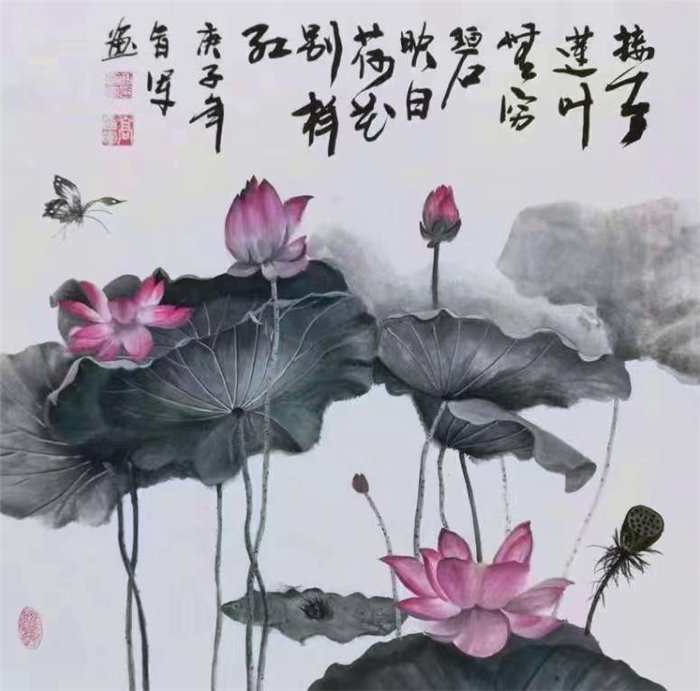 接天
蓮叶
無穷
碧
映日
荷花
别样
红
庚子年
画